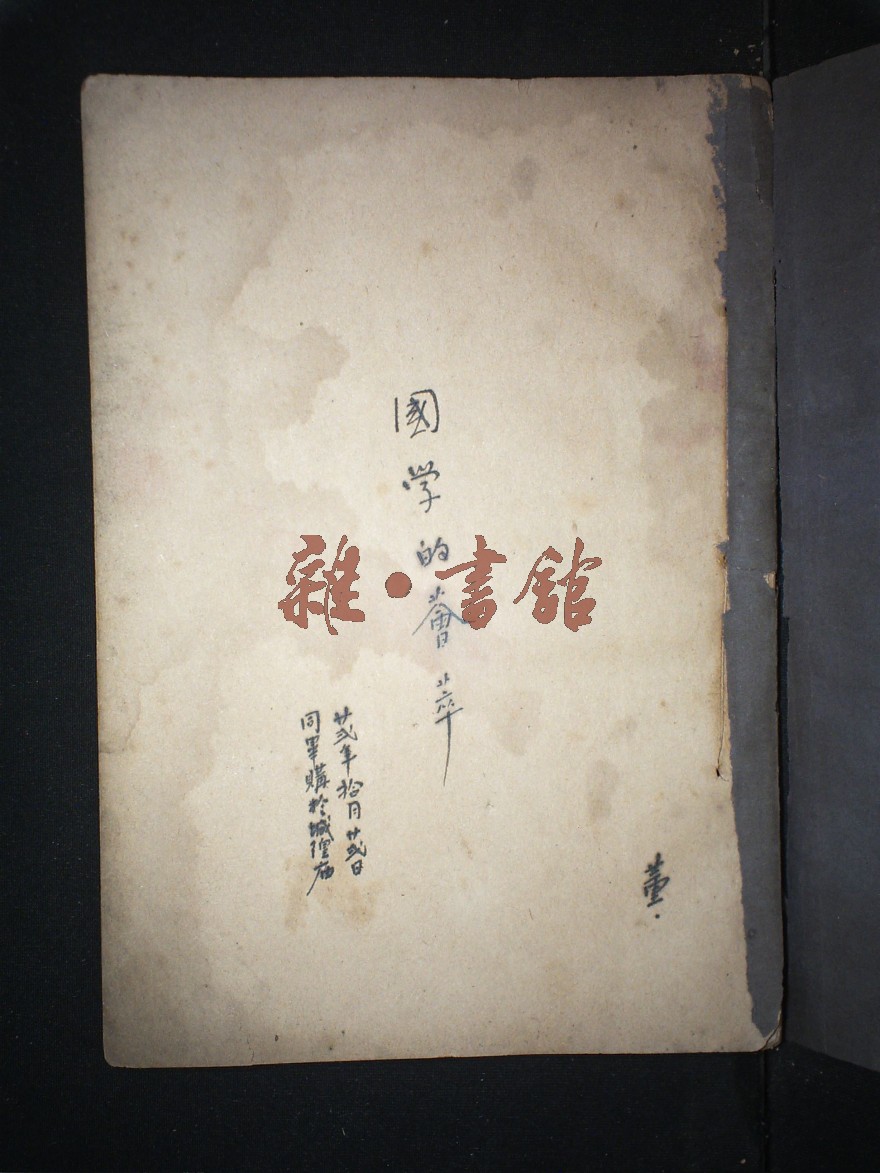 董.
國学的薈萃
廿弍年拾月廿弍日
同畢購於城隍庙
雜·書館